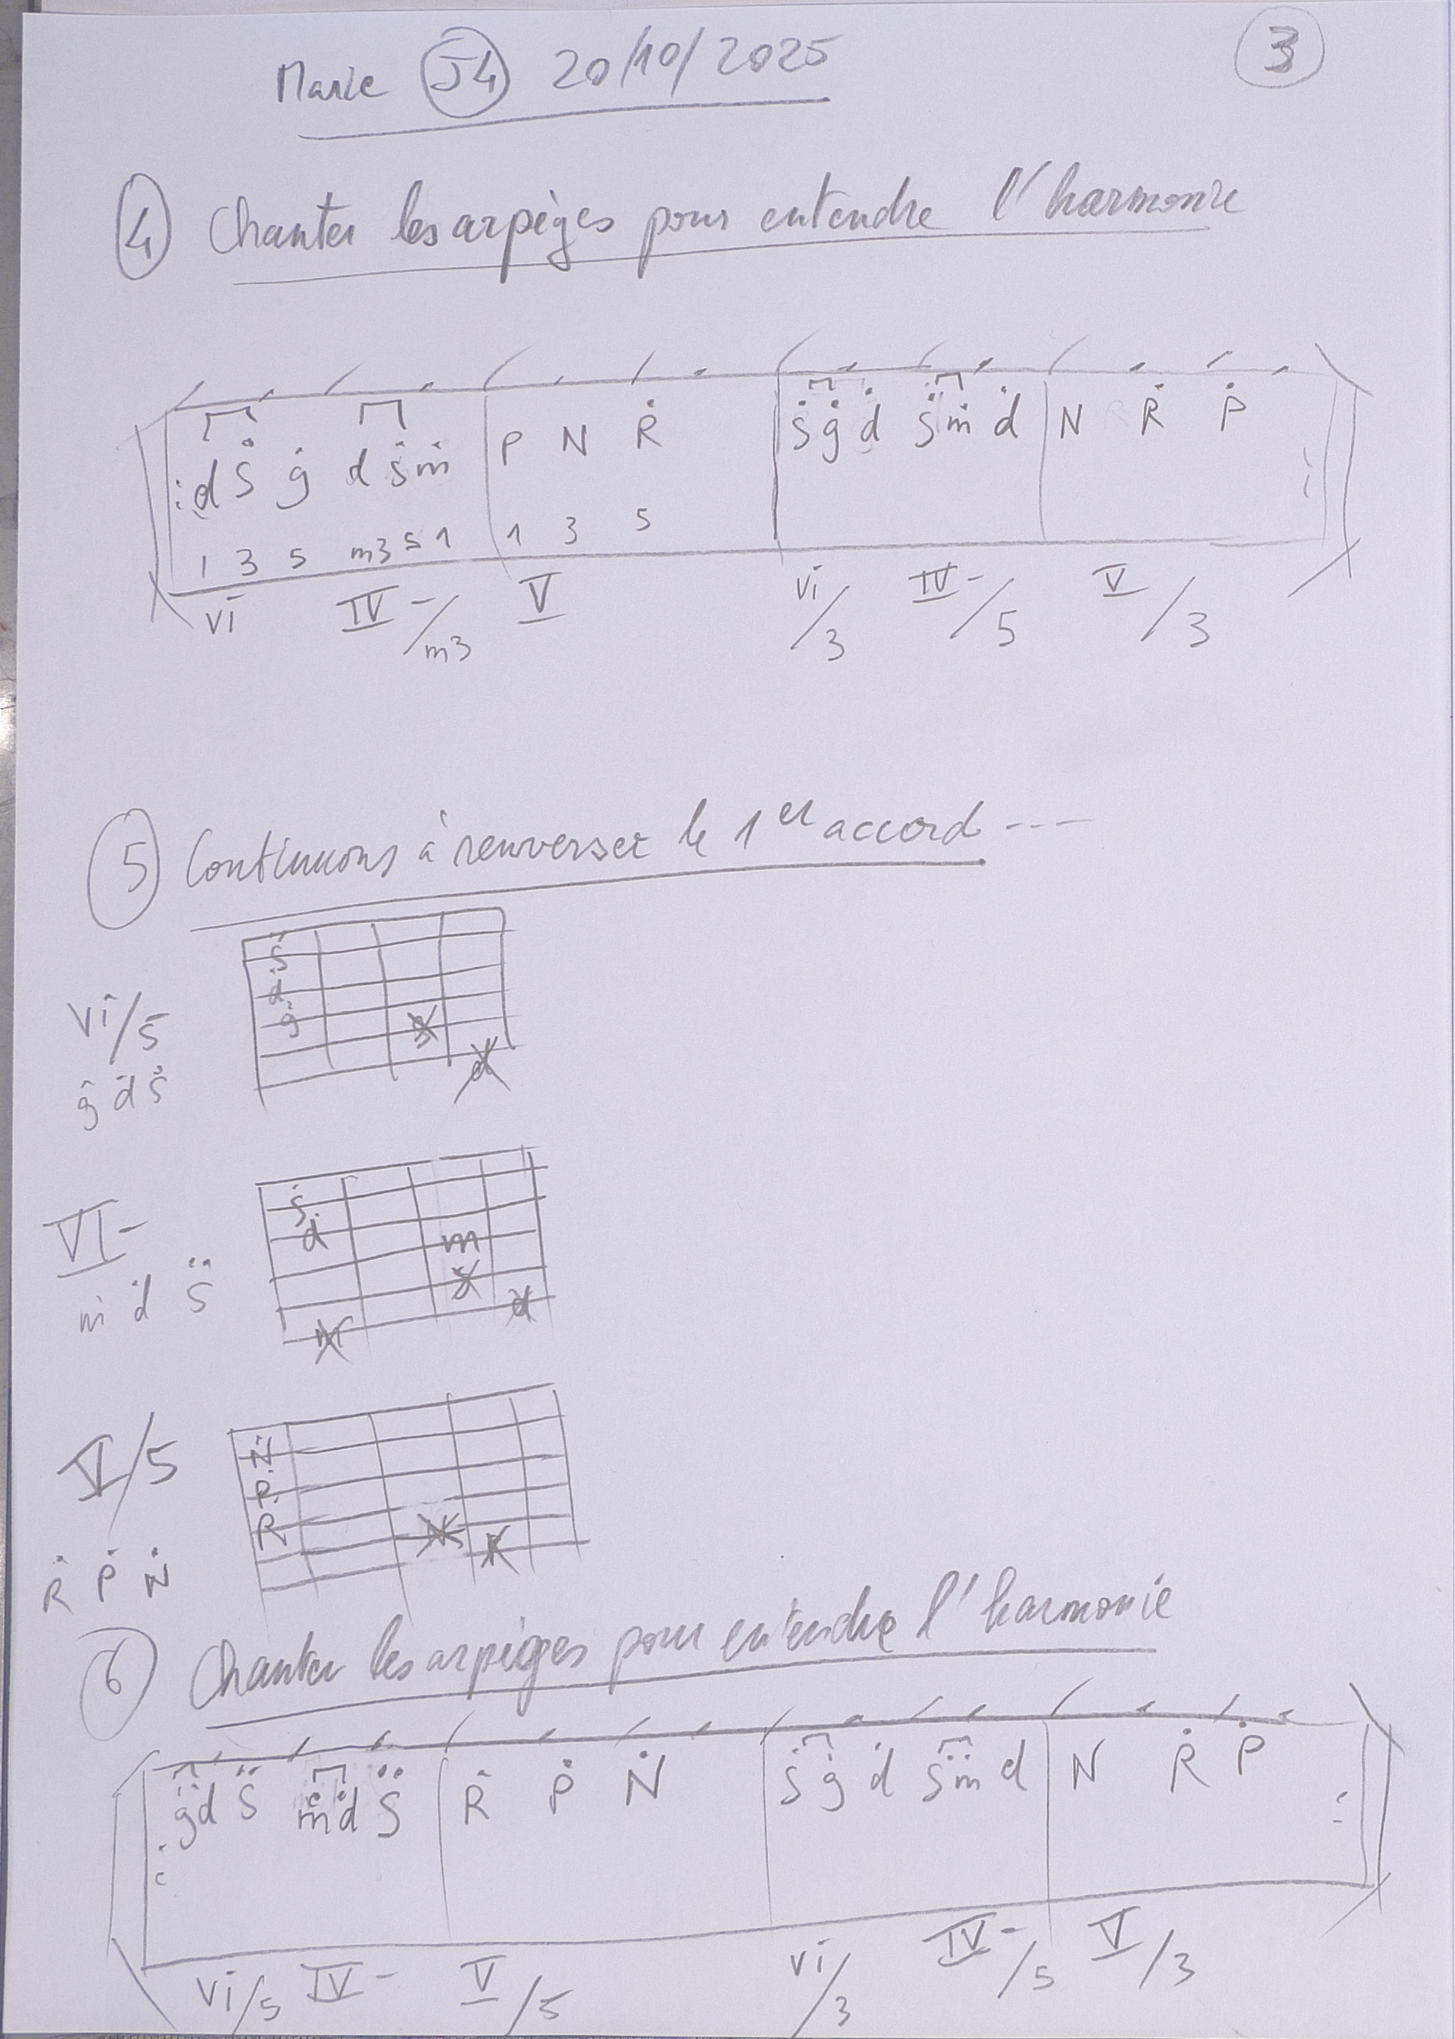 Marie J4 20/10/2025
3
4 Chanter les arpèges pour entendre l'harmonie
:d Ṡ ġ d ṡ ṁ | P N Ṙ | ṡ ġ ḋ ṡ ṁ ḋ | N Ṙ Ṗ :
1 3 5 m3 5 1 | 1 3 5
vi IV-/m3 V vi/3 IV-/5 V/3
5 Continuons à renverser le 1er accord ---
vi/5
ġ ḋ ṡ
s̈
ḋ
ġ
d
VI-
ṁ ḋ s̈
ṡ
ḋ
m
d
V/5
Ṙ Ṗ Ṅ
Ṅ
P
R
6 Chanter les arpèges pour entendre l'harmonie
: ġ ḋ s̈ ṁ ḋ s̈ | Ṙ Ṗ Ṅ | ṡ ġ ḋ ṡ ṁ d | N Ṙ Ṗ :
vi/5 IV- V/5 vi/3 IV-/5 V/3